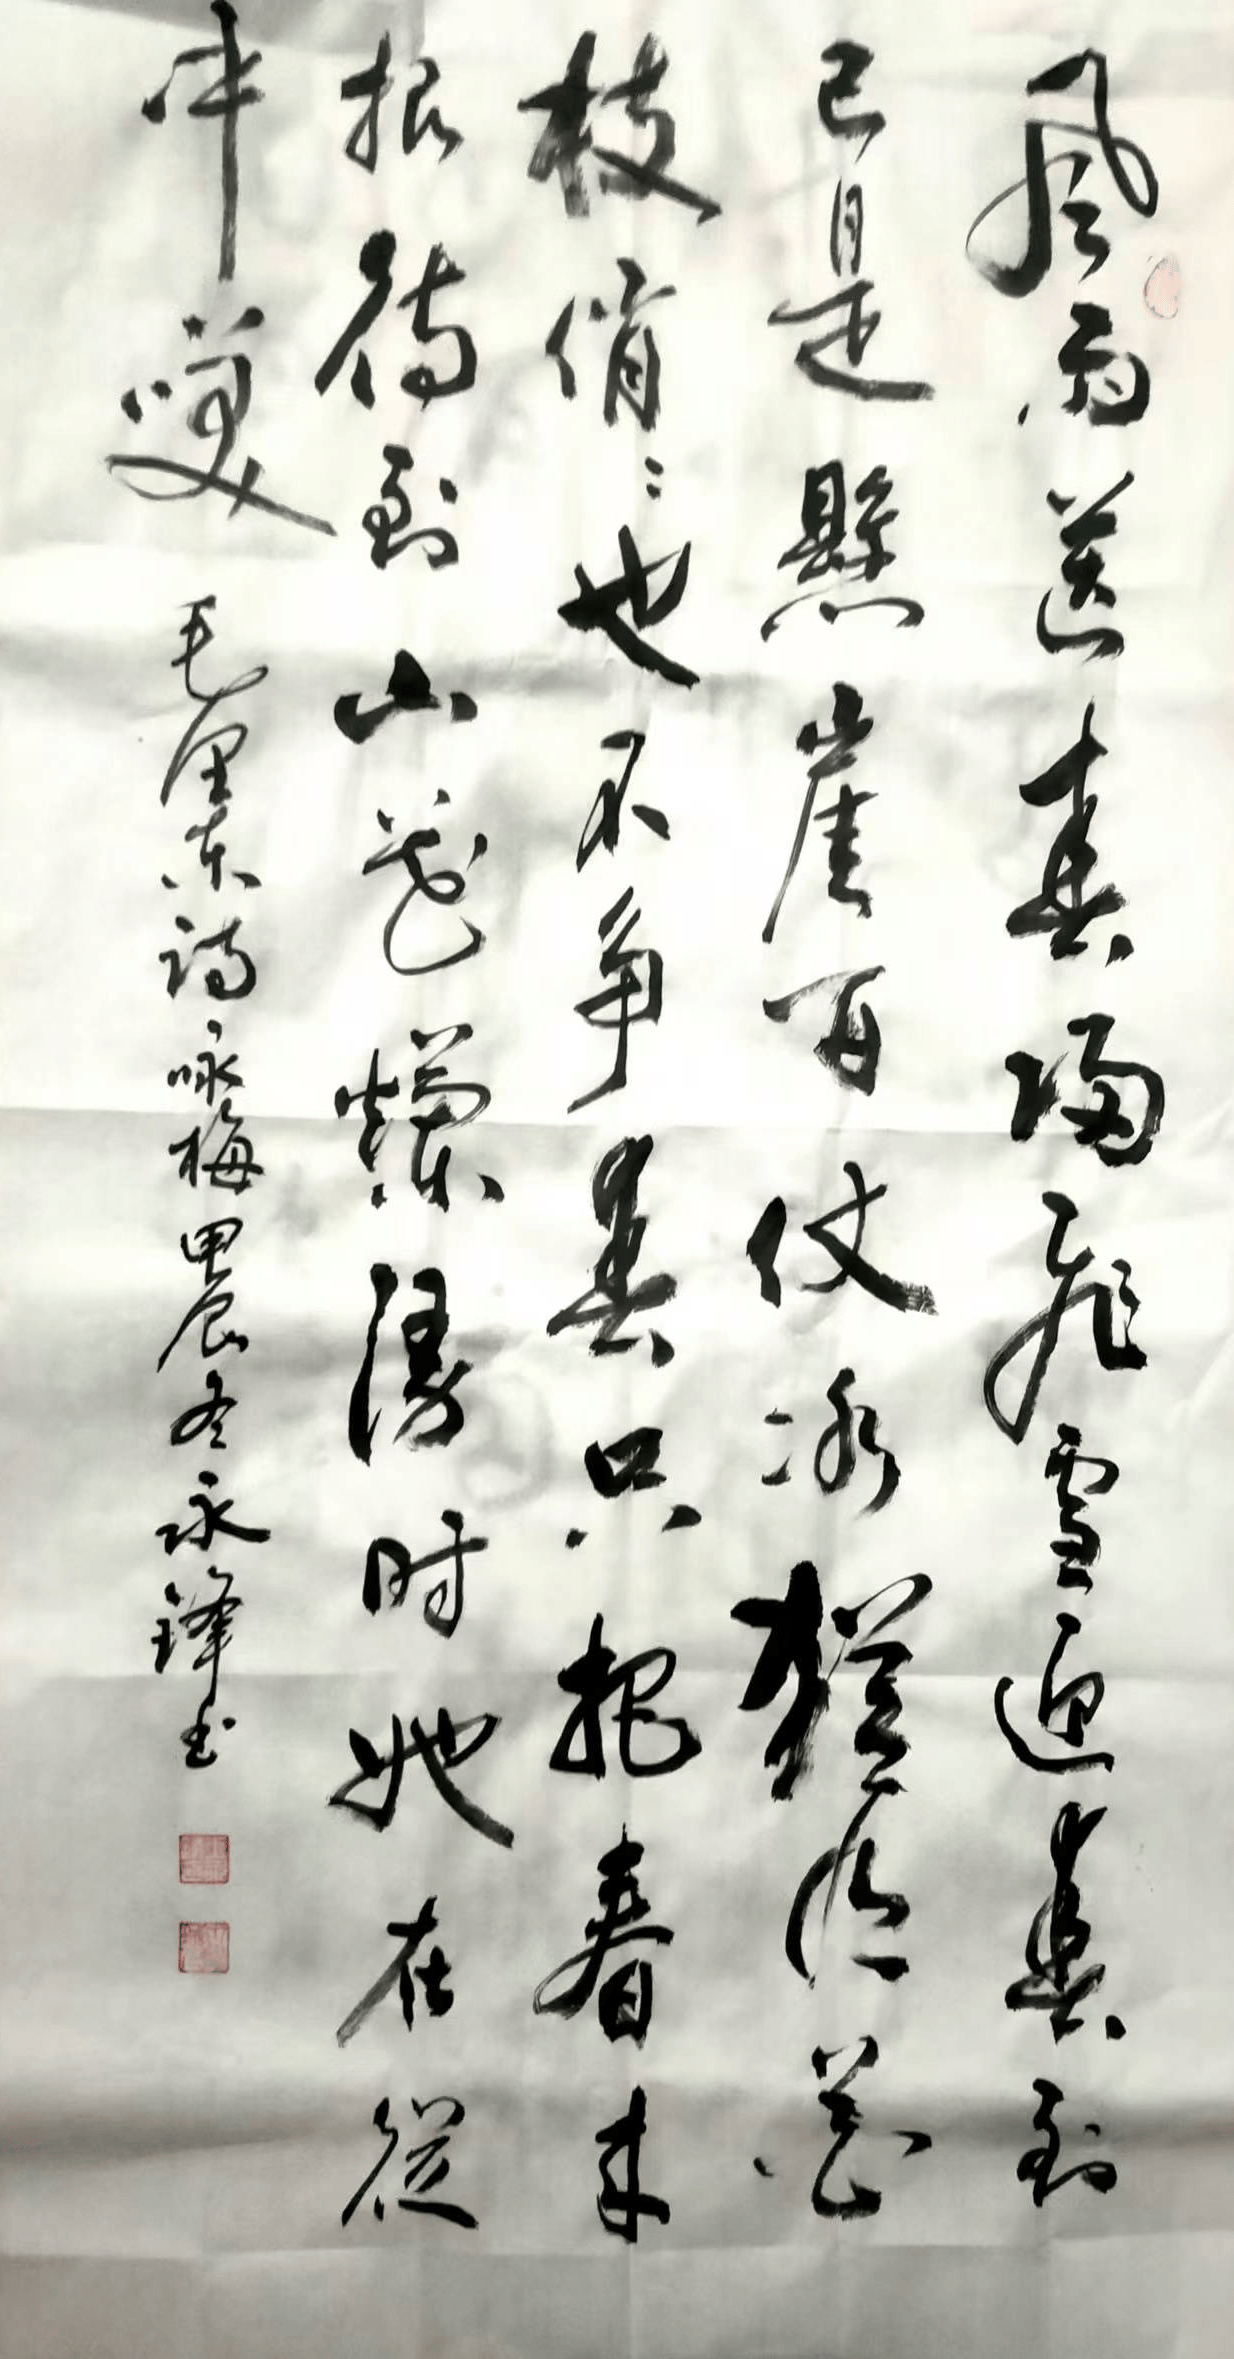 風雨送春歸飛雪迎春到
已是懸崖百仗冰猶有花
枝俏〻也不争春只把春来
报待到山花爛漫时她在從
中笑
毛泽东诗咏梅甲辰冬永鋒书